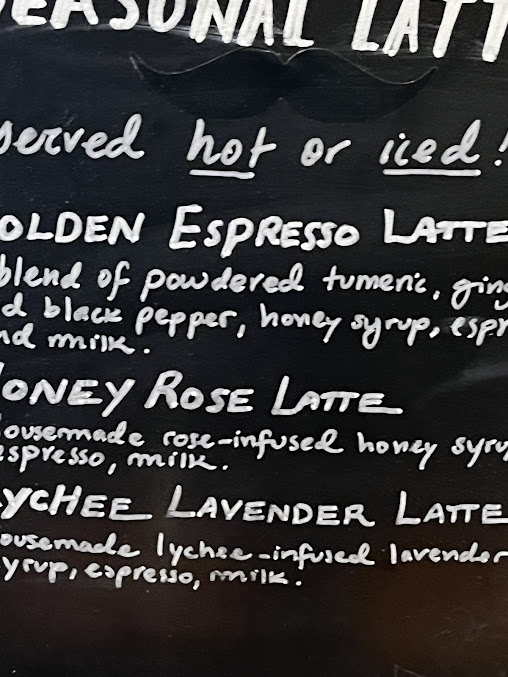 EASONAL LATT
served hot or iced!
OLDEN ESPRESSO LATTE
blend of powdered tumeric, ging
d black pepper, honey syrup, espr
nd milk.
ONEY ROSE LATTE
ousemade rose-infused honey syru
espresso, milk.
YCHEE LAVENDER LATTE
ousemade lychee-infused lavender
yrup, espresso, milk.